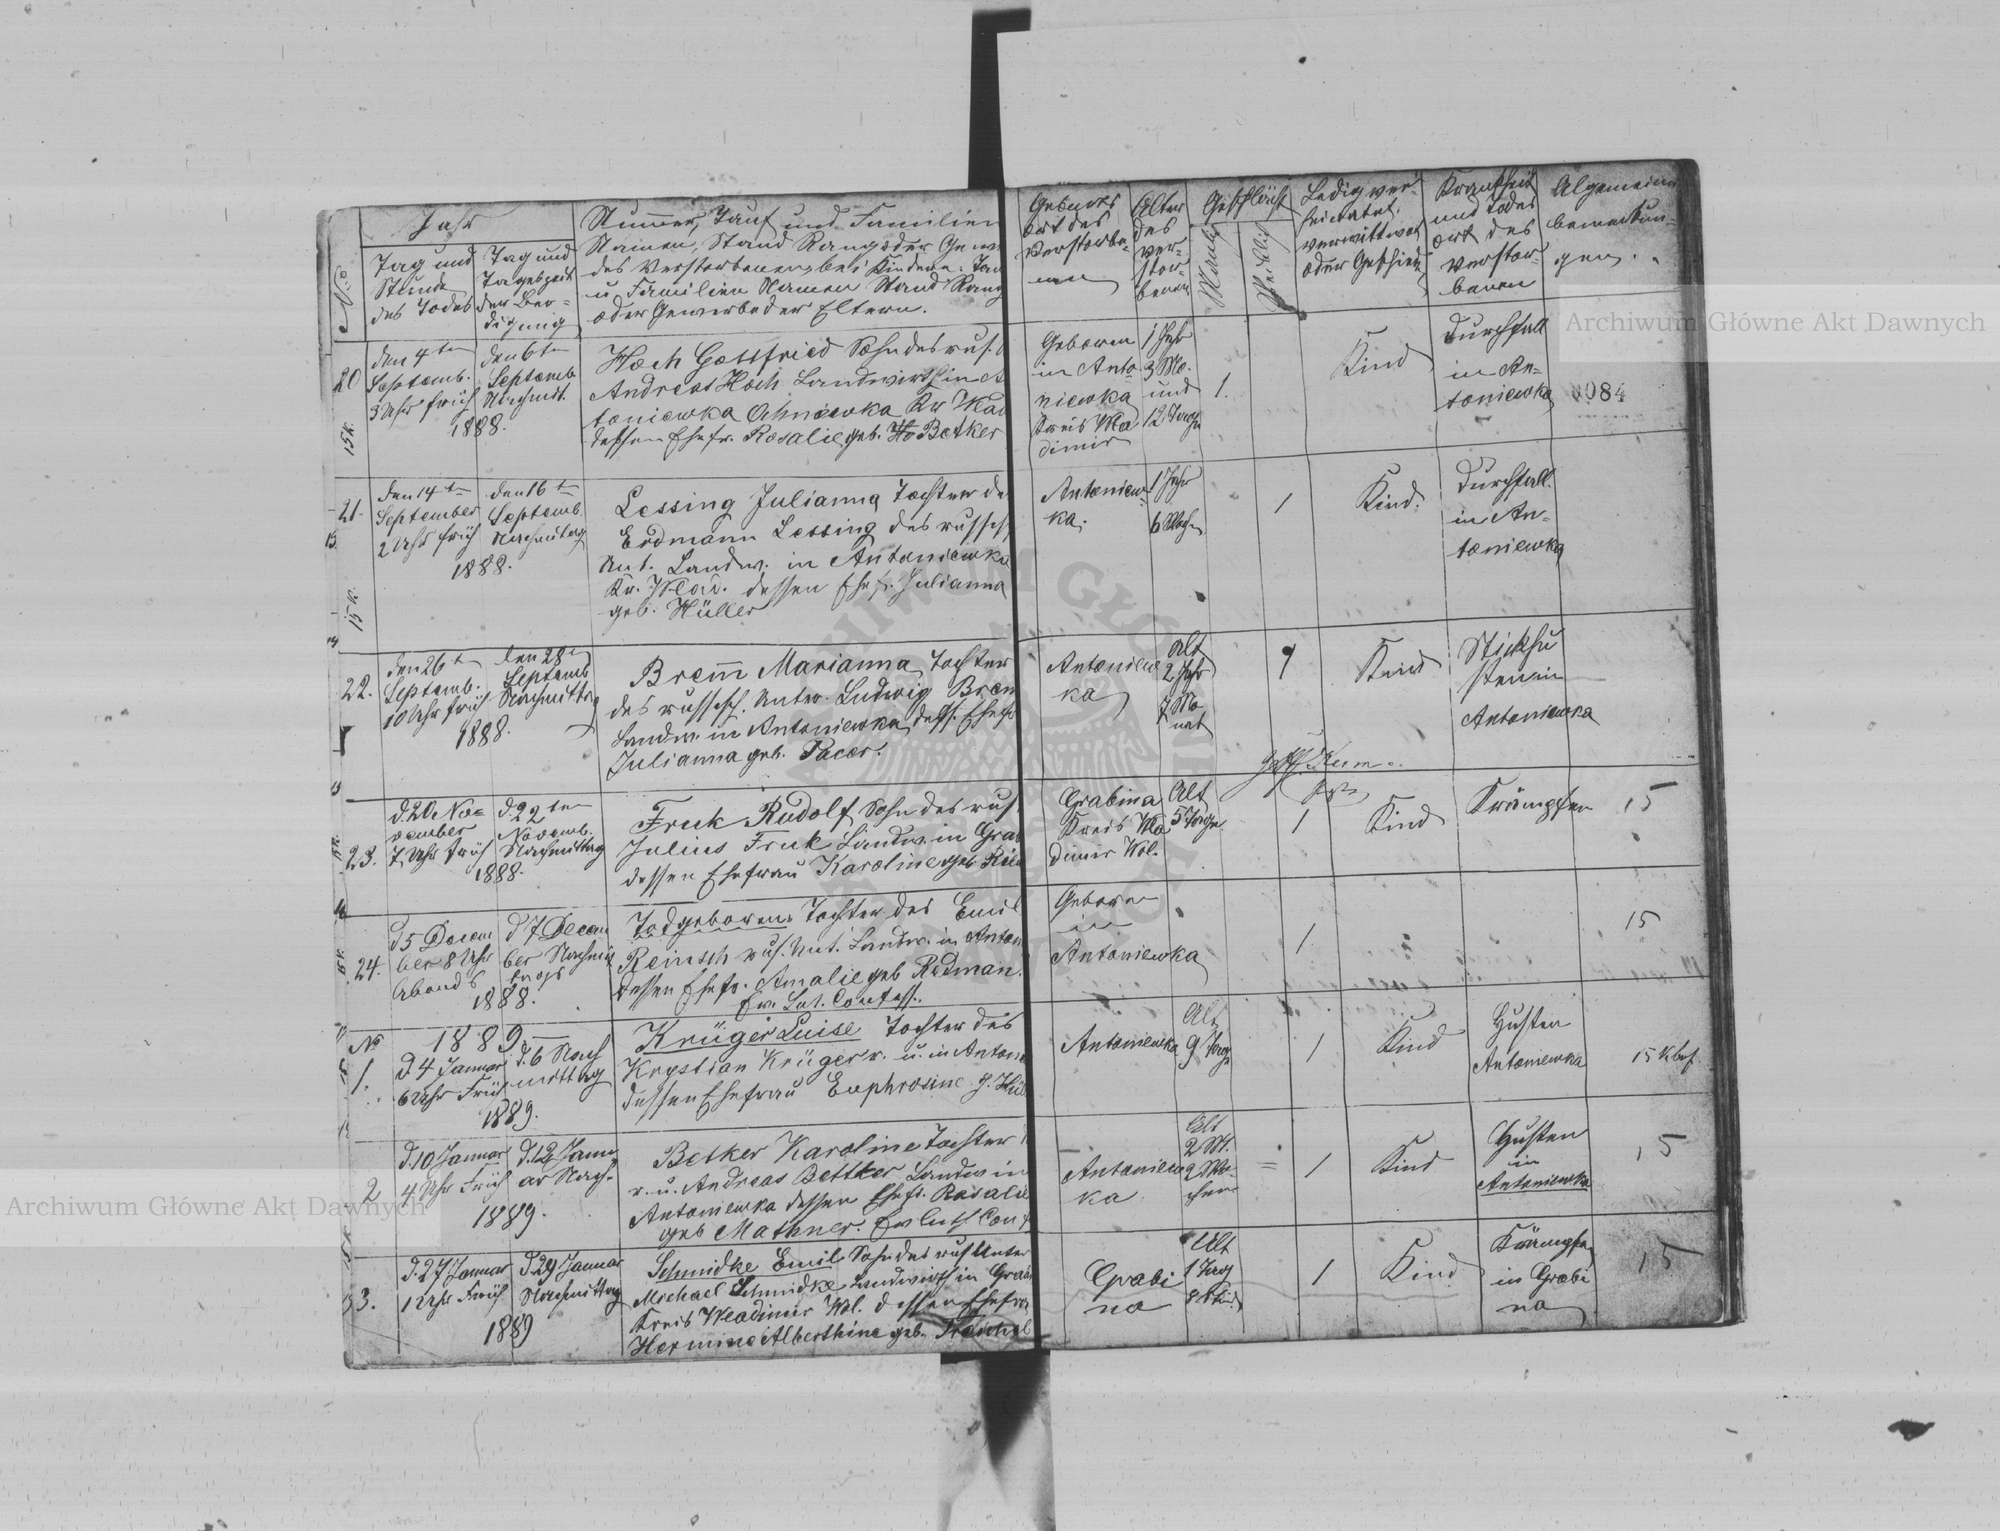 Jahr
No
Tag und
Stunde
des Todes
Tag und
Tageszeit
der Beer=
digung
Nummer, Tauf und Familien
Namen, Stand Rang oder Gew
des Verstorbenen, bei Kindern: Tau
u. Familien Namen Stand Rang
oder Gewerbe der Eltern.
Geburts
Ort des
Verstorbe=
nen
Alter
des
Ver=
stor=
benen
Geschlecht
Männl.
Weibl.
Ledig ver
heiratet.
verwittwet
oder Geschied
Krankheit
und Todes
ort des
Verstor=
benen
Algemeine
bemerkun=
gen.
20
15 K.
den 4ten
Septemb.
3 Uhr früh
den 6ten
Septemb
Nachmit.
1888.
Hoch Gottfried Sohn des rus.
Andreas Hoch Landwirth in A
toniewka Kr Wla
dessen Ehefr. Rosalie geb. Betker
Geboren
in Anto
niewka
Kreis Wla
dimir
1 Jahr
3 Mo.
und
12 Tage
1.
Kind
Durchfall
in An=
toniewka
0084
21.
15 K.
den 14ten
September
2 Uhr früh
den 16ten
Septemb.
Nachmittag
1888.
Lessing Julianna Tochter de
Erdmann Lessing des russisch
Unt. Landw. in Antoniewka
Kr. Wlad. dessen Ehefr. Julianna
geb. Müller
Antoniew=
ka.
1 Jahr
6 Woch.
1
Kind.
Durchfall.
in An=
toniewka
22.
den 26t
Septemb.
10 Uhr früh
den 28t
Septemb
Nachmittg
1888.
Brem̄ Marianna, Tochter
des russisch. Unter. Ludwig Brem
Landw. in Antoniewka, dess. Ehefr
Julianna geb. Pacer.
Antoniew
ka
Alt
2 Jahr
7 Mo
nat
1
Kind
Stickhu
sten in
Antoniewka
23.
d. 20 No=
vember
7 Uhr früh
d. 22ten
Novemb.
Nachmittag
1888.
Fruk Rudolf, Sohn des rus
Julius Fruk Landw. in Grab
dessen Ehefrau Karoline geb
Grabina
Kreis Wla
dimir Wol.
Alt
5 Tage
1
Kind
Krämpfen
15
24.
d 5 Decem
ber 8 Uhr
Abends
d 7 Decem
ber Nachmit
tags
1888.
Todgeboren. Tochter des Emil
Reinsch rus. Unt. Landw. in Anton
dessen Ehefr. Amalie geb Redman.
Ev. Lut. Confess.
Geboren
in
Antoniewka
1
15
No 1889.
1.
d. 4 Januar
6 Uhr Früh
d. 6 Nach
mittag
1889.
Krüger Luise Tochter des
Krystian Krüger r. u. in Antone
dessen Ehefrau Euphrosine g.
Antoniewka
Alt
9 Tage
1
Kind
Husten
Antoniewka
15 Kbn.
2
d. 10 Januar
4 Uhr Früh
d. 12 Janu
ar Nach=
1889.
Betker Karoline Tochter
r. u. Andreas Bettker Landw in
Antoniewka dessen Ehefr. Rosalie
geb Mathner. Ev Luth Conf
Antoniew
ka
Alt
2 Mt.
2 Wo=
chen
= 1
Kind
Husten
in
Antoniewka
15
3.
d. 27 Januar
1 Uhr Früh
d. 29 Januar
Nachmittag
1889
Schmidke Emil Sohn des rus Unter
Michael Schmidke Landwirth in Grabi
Kreis Wladimir Wol. dessen Ehefrau
Hermine Alberthine geb. Treichel
Grabi
na
Alt
1 Tag
8 Stund
1
Kind
Krämpfe
in Grabi
na
15
Archiwum Główne Akt Dawnych
Archiwum Główne Akt Dawnych